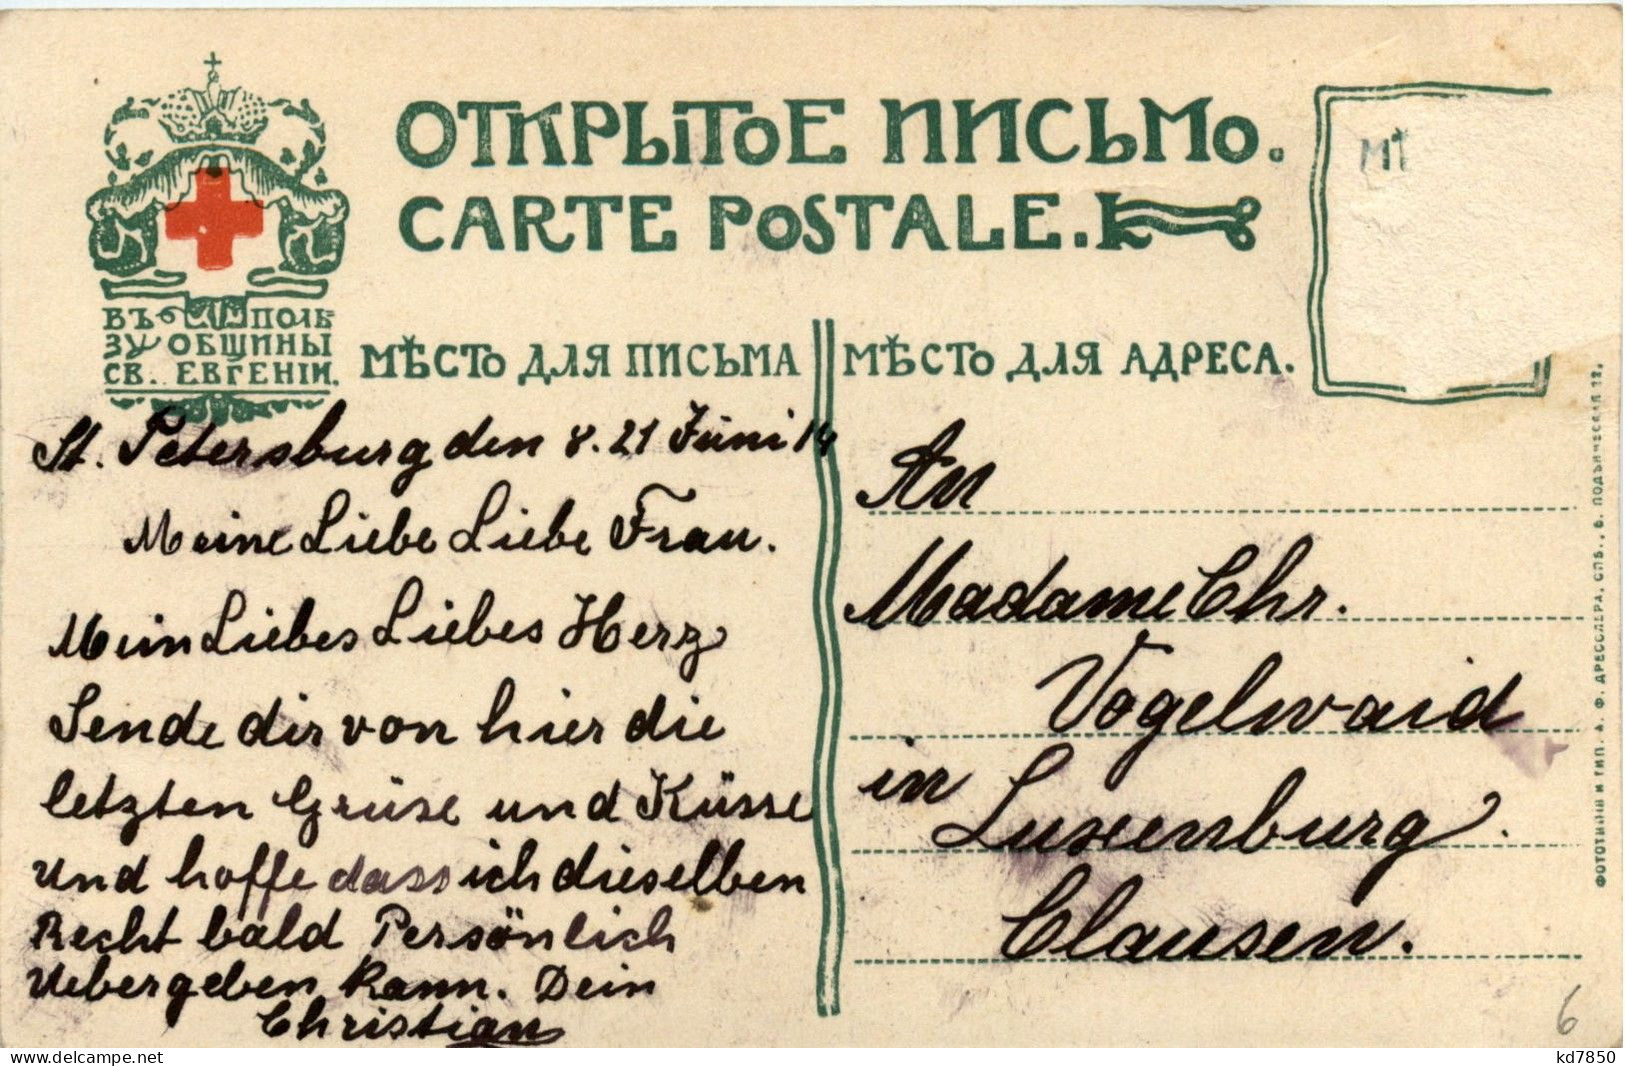 ОТКРЫТОЕ ПИСЬМО.
CARTE POSTALE.
ВЪ ПОЛЬ-
ЗУ ОБЩИНЫ
СВ. ЕВГЕНІИ.
МѢСТО ДЛЯ ПИСЬМА
МѢСТО ДЛЯ АДРЕСА.
St. Petersburg den 8.21 Juni 14
Meine Liebe Liebe Frau.
Mein Liebes Liebes Herz
Sende dir von hier die
letzten Grüse und Küsse
und hoffe dass ich dieselben
Recht bald Persönlich
Uebergeben kann. Dein
Christian
An
Madame Chr.
Vogelwaid
in
Luxenburg.
Clausen.
ФОТОТИПІЯ И ТИП. А. Ф. ДРЕССЛЕРА, СПБ., Б. ПОДЬЯЧЕСКАЯ 22.
6
kd7850
www.delcampe.net